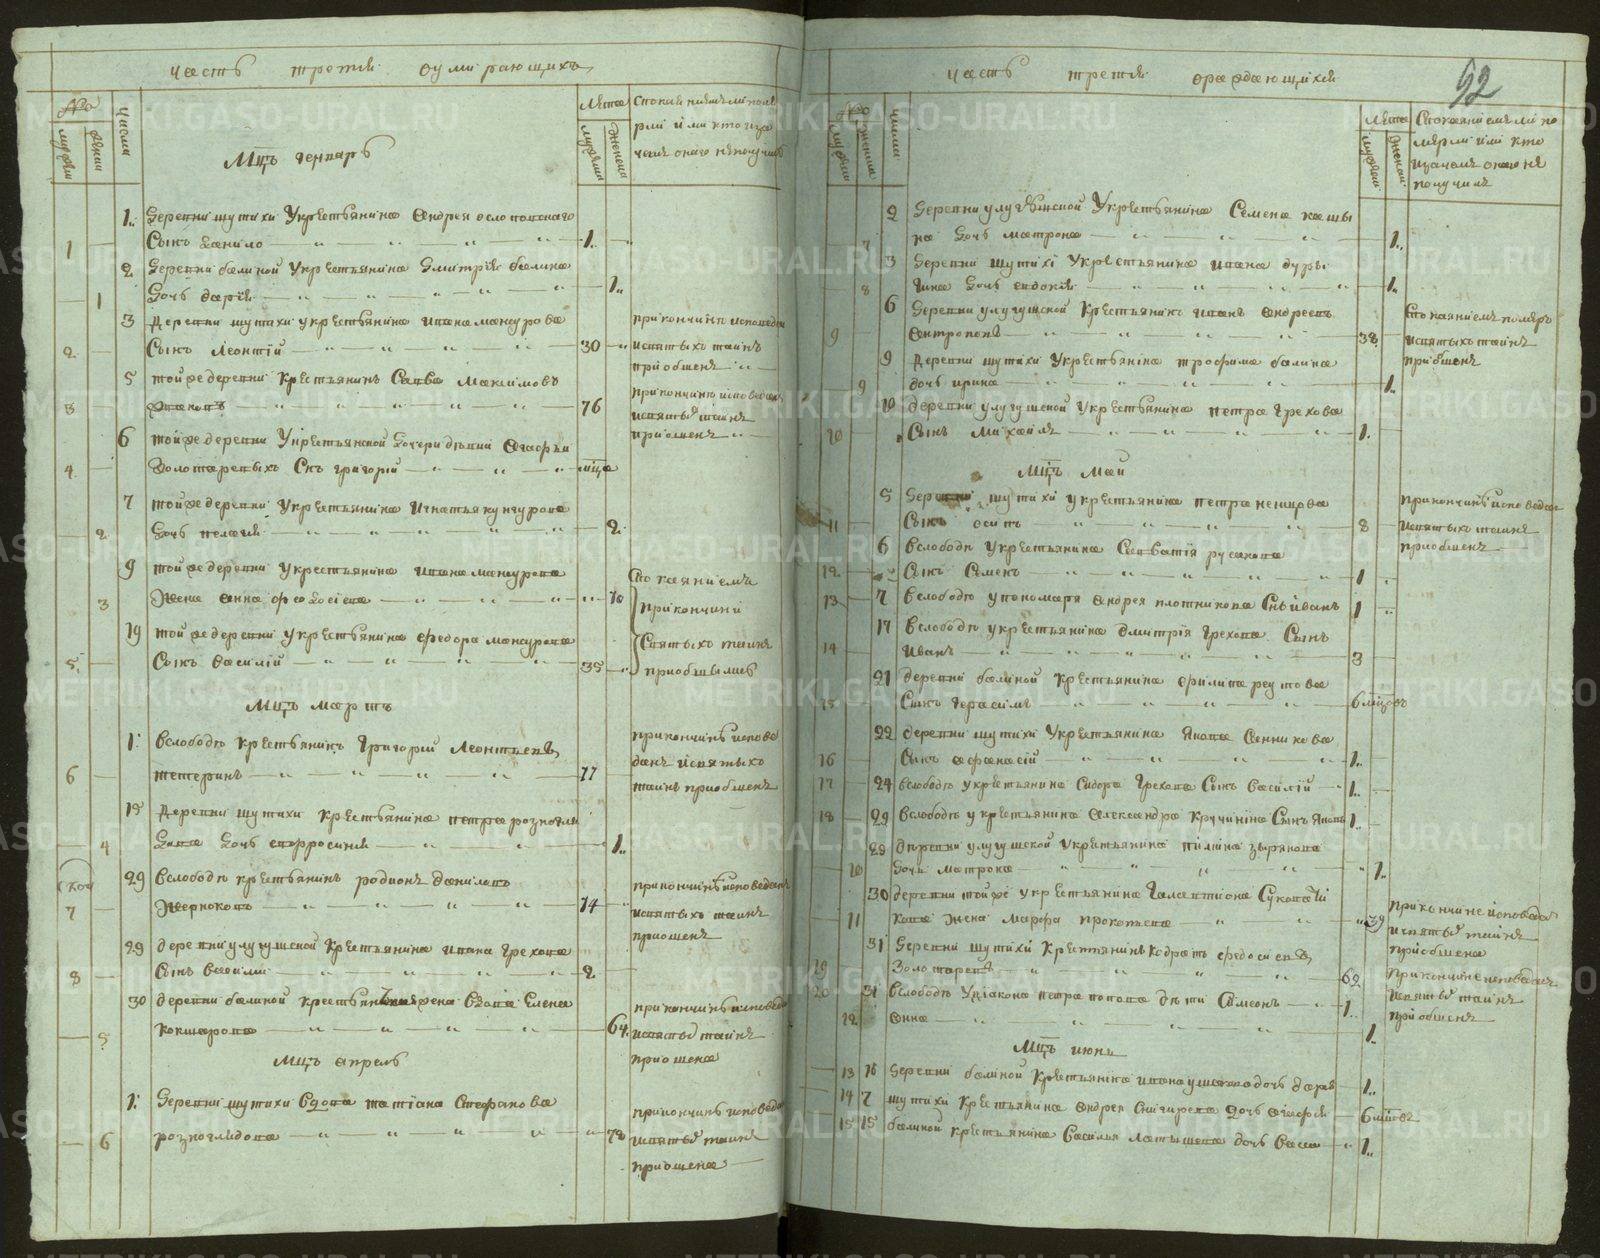 часть третия оумирающихъ
№
мужеска
женска
числа
Мцъ генварь
Лѣта
мужеска
женска
1. деревни шутихи укрестьянина Андрея
Сынъ данило 1.
1
2. деревни балиной укрестьянина Дмитрия балина
1 дочь дария 1.
3 деревни шутихи укрестьянина ивана мансурова
2 Сынъ Леонтий 30
при кончинѣ исповедан
исвятыхъ таинъ
приобщенъ
5 той же деревни крестьянинъ Савва Максимовъ
3 76
при кончинѣ исповедан
исвятыхъ таинъ
приобщенъ
6 той же деревни укрестьянской дочери девки Агафьи
4 Золотаревыхъ Снъ григорий мцѧ
7 той же деревни укрестьянина Игнатья кунгурова
2 дочь пелагия 2.
9 той же деревни укрестьянина ивана мансурова
3 жена анна феодосиева 70
Спокаяниемъ
при кончини
19 той же деревни укрестьянина федора мансурова
5. Сынъ василий 35
Святыхъ таинъ
приобщились
Мцъ мартъ
1. вслободѣ крестьянинъ григорий Леонтьевъ
6 тетеринъ 77
при кончинѣ испове
данъ исвятыхъ
таинъ приобщенъ
15 деревни шутихи крестьянина петра розногли
4 дова дочь евфросиния 1.
29 вслободѣ крестьянинъ родионъ даниловъ
7 Жерноковъ 74
при кончинѣ исповеданъ
исвятыхъ таинъ
приощенъ
29 деревни улугушской крестьянина ивана грехова
8 Сынъ василий 2.
30 деревни балиной вдова елена
5 кокшарова 64.
при кончинѣ исповеда
исвятых таинъ
приощена
Мцъ апрель
1. деревни шутихи вдова татиана Стефанова
6 розноглядова 72
при кончинѣ исповеда
исвятых таинъ
приощена
часть третия
92
№
мужеска
женска
числа
Лѣта
мужеска
женска
Спокаяниемъ ли по
мерли или кто
изачемъ онаго не
получилъ
2 деревни улугушской укрестьянина Семена кашы
7 на дочь матрона 1.
3 деревни шутихи укрестьянина ивана дуры
8 гина дочь евдокия 1.
6 деревни улугушской крестьянинъ иванъ андреевъ
9 Антроповъ 38.
Спокаяниемъ померъ
исвятыхъ таинъ
приобщенъ
9 деревни шутихи укрестьянина трофима балина
9 дочь ирина 1.
19 деревни улугушской укрестьянина петра грехова
10 Сынъ михаилъ 1.
Мцъ май
5 деревни шутихи укрестьянина петра немцова
11 Сынъ осипъ 8
при кончинѣ исповедан
исвятыхъ таинъ
приобщенъ
6 вслободѣ укрестьянина Савватия русакова
12 Сынъ Семенъ 1
13 7 вслободѣ упономаря андрея плотникова Снъ иванъ 1
17 вслободѣ укрестьянина дмитрия грехова Сынъ
14 Иванъ 3
21 деревни балиной крестьянина филипа реутова
15 Сынъ герасимъ 6 мцовъ
22 деревни шутихи укрестьянина якова Санникова
16 Сынъ афанасий 1.
17 24 вслободѣ укрестьянина Сидора грехова Сынъ василий 1.
18 29 вслободѣ укрестьянина Александра кручинина Сынъ яковъ 1.
29 деревни улугушской укрестьянина пимина зырянова
10 дочь матрона 1.
30 деревни той же укрестьянина галактиона
11 кова жена марфа прокопьева 39
при кончине исповедана
исвятых таинъ
приобщена
31 деревни шутихи крестьянинъ кодратъ федосиевъ
19 Золотаревъ 62
при кончине исповеданъ
исвятые таинъ
приобщенъ
20 31 вслободѣ удиакона петра попова дѣти Симеонъ 1.
12 анна 1.
Мцъ июнь
13 16 деревни балиной крестьянина ивана ушакова дочь дарья 1.
14 7 шутихи крестьянина андрея Снигирева дочь агафия 6 мцовъ
15 15 балиной крестьянина василья латышева дочь васса 1.
METRIKI.GASO-URAL.RU